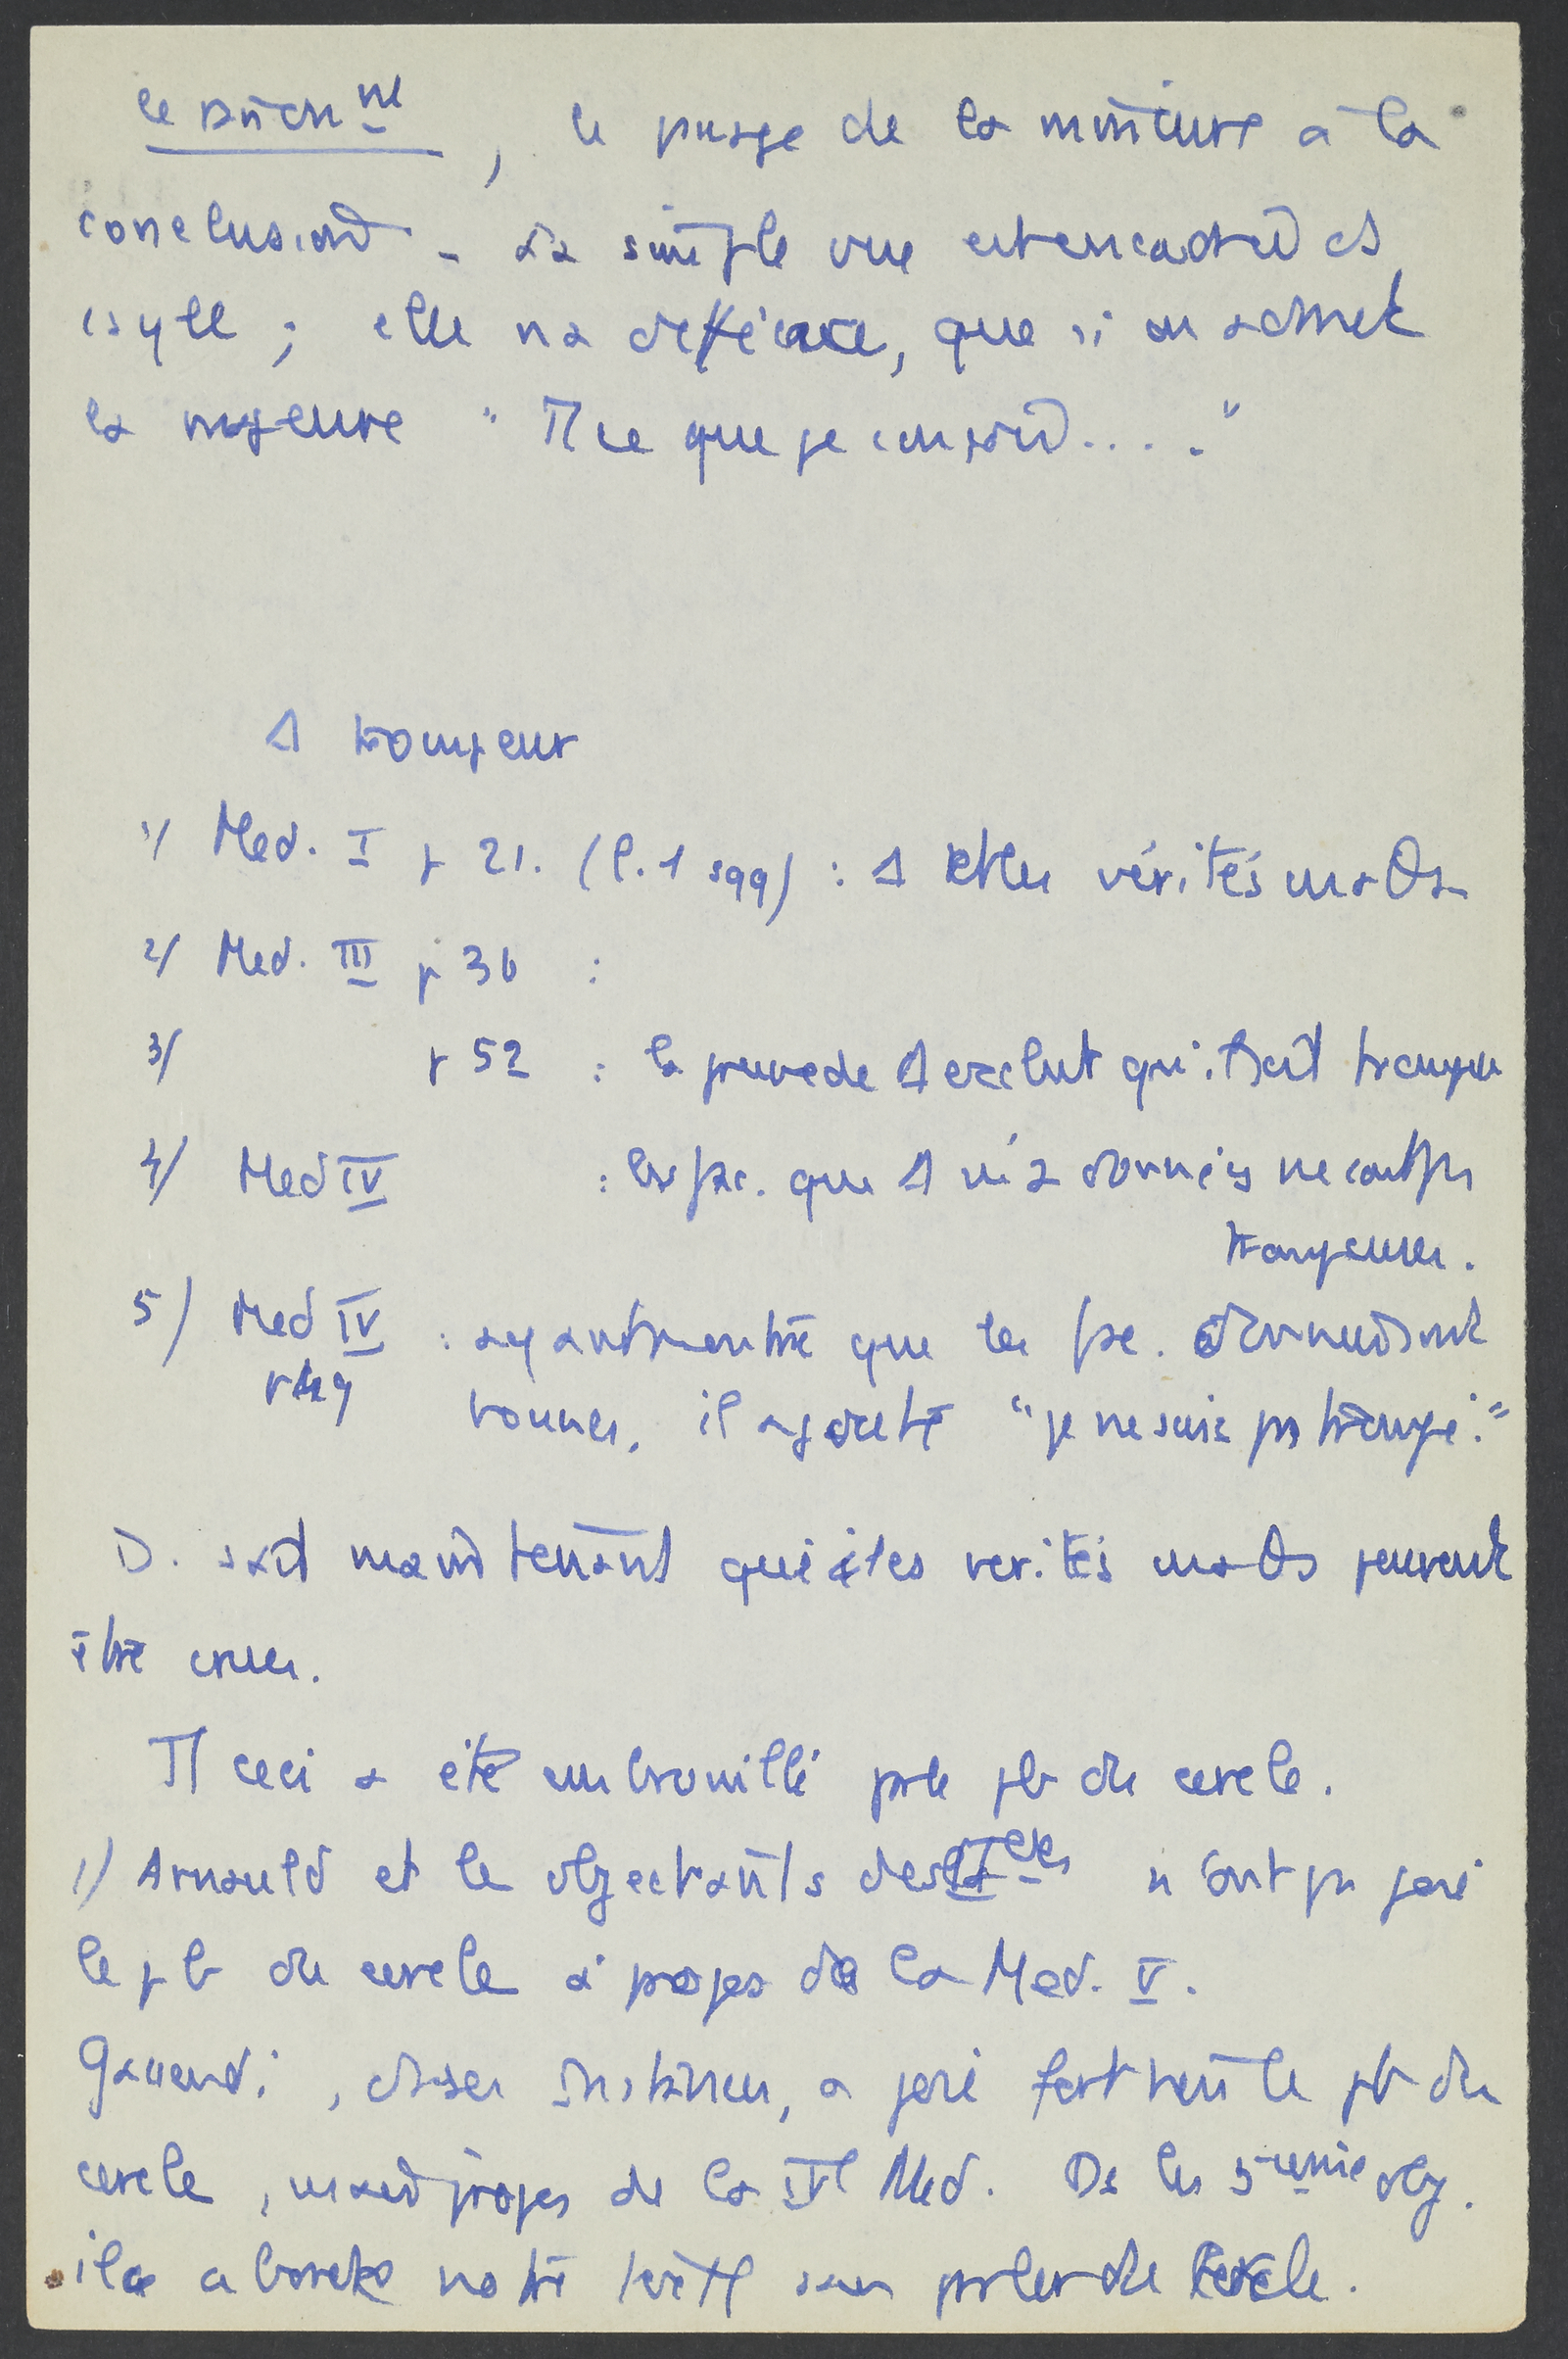 , le passage de la mineure à la
conclusion. La simple vue est encadrée ds
ce syll ; elle n'a d'efficace, que si on admet
la majeure " Π ce que je conçois.... "
Δ trompeur
1/ Med. I p 21. (l. 1 sqq) : Δ et les vérités maths
2/ Med. III p 36 :
3/ p 52 : la preuve de Δ exclut qu'il soit trompeur
4/ Med IV : les fac. que Δ m'a données ne sont pas
trompeuses.
5/ Med IV : ayant montré que les fac. données sont
bonnes, il ajoute "je ne suis pas trompé."
D. sait maintenant que les vérités maths peuvent
être crues.
Π ceci a été embrouillé par le pb du cercle.
1/ Arnauld et les objectants des n'ont pas posé
le pb du cercle à propos de la Med. V.
Gassendi, ds ses Instances, a posé fort bien le pb du
cercle, mais à propos de la IVe Med. Ds les 5emes obj.
il a aborde notre texte sans parler du cercle.